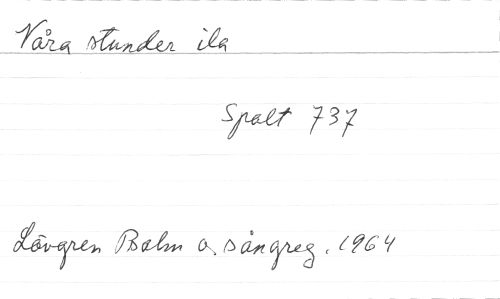 Våra stunder ila
Spalt 737
Lövgren Psalm o. sångreg. 1964